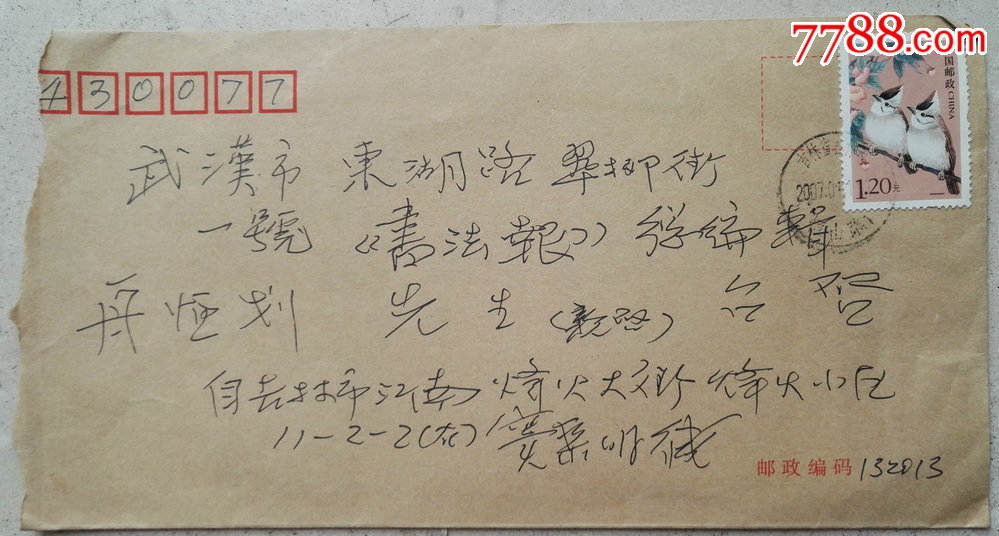 7788.com
国邮政 CHINA
1.20元
430077
吉林
2007.0
武漢市 東湖路 翠柳街
一號 《書法報》 編輯
先生 (親啓) 台啓
自吉林市江南 烽火大街 烽火小区
11-2-2(左)
邮政编码 132013